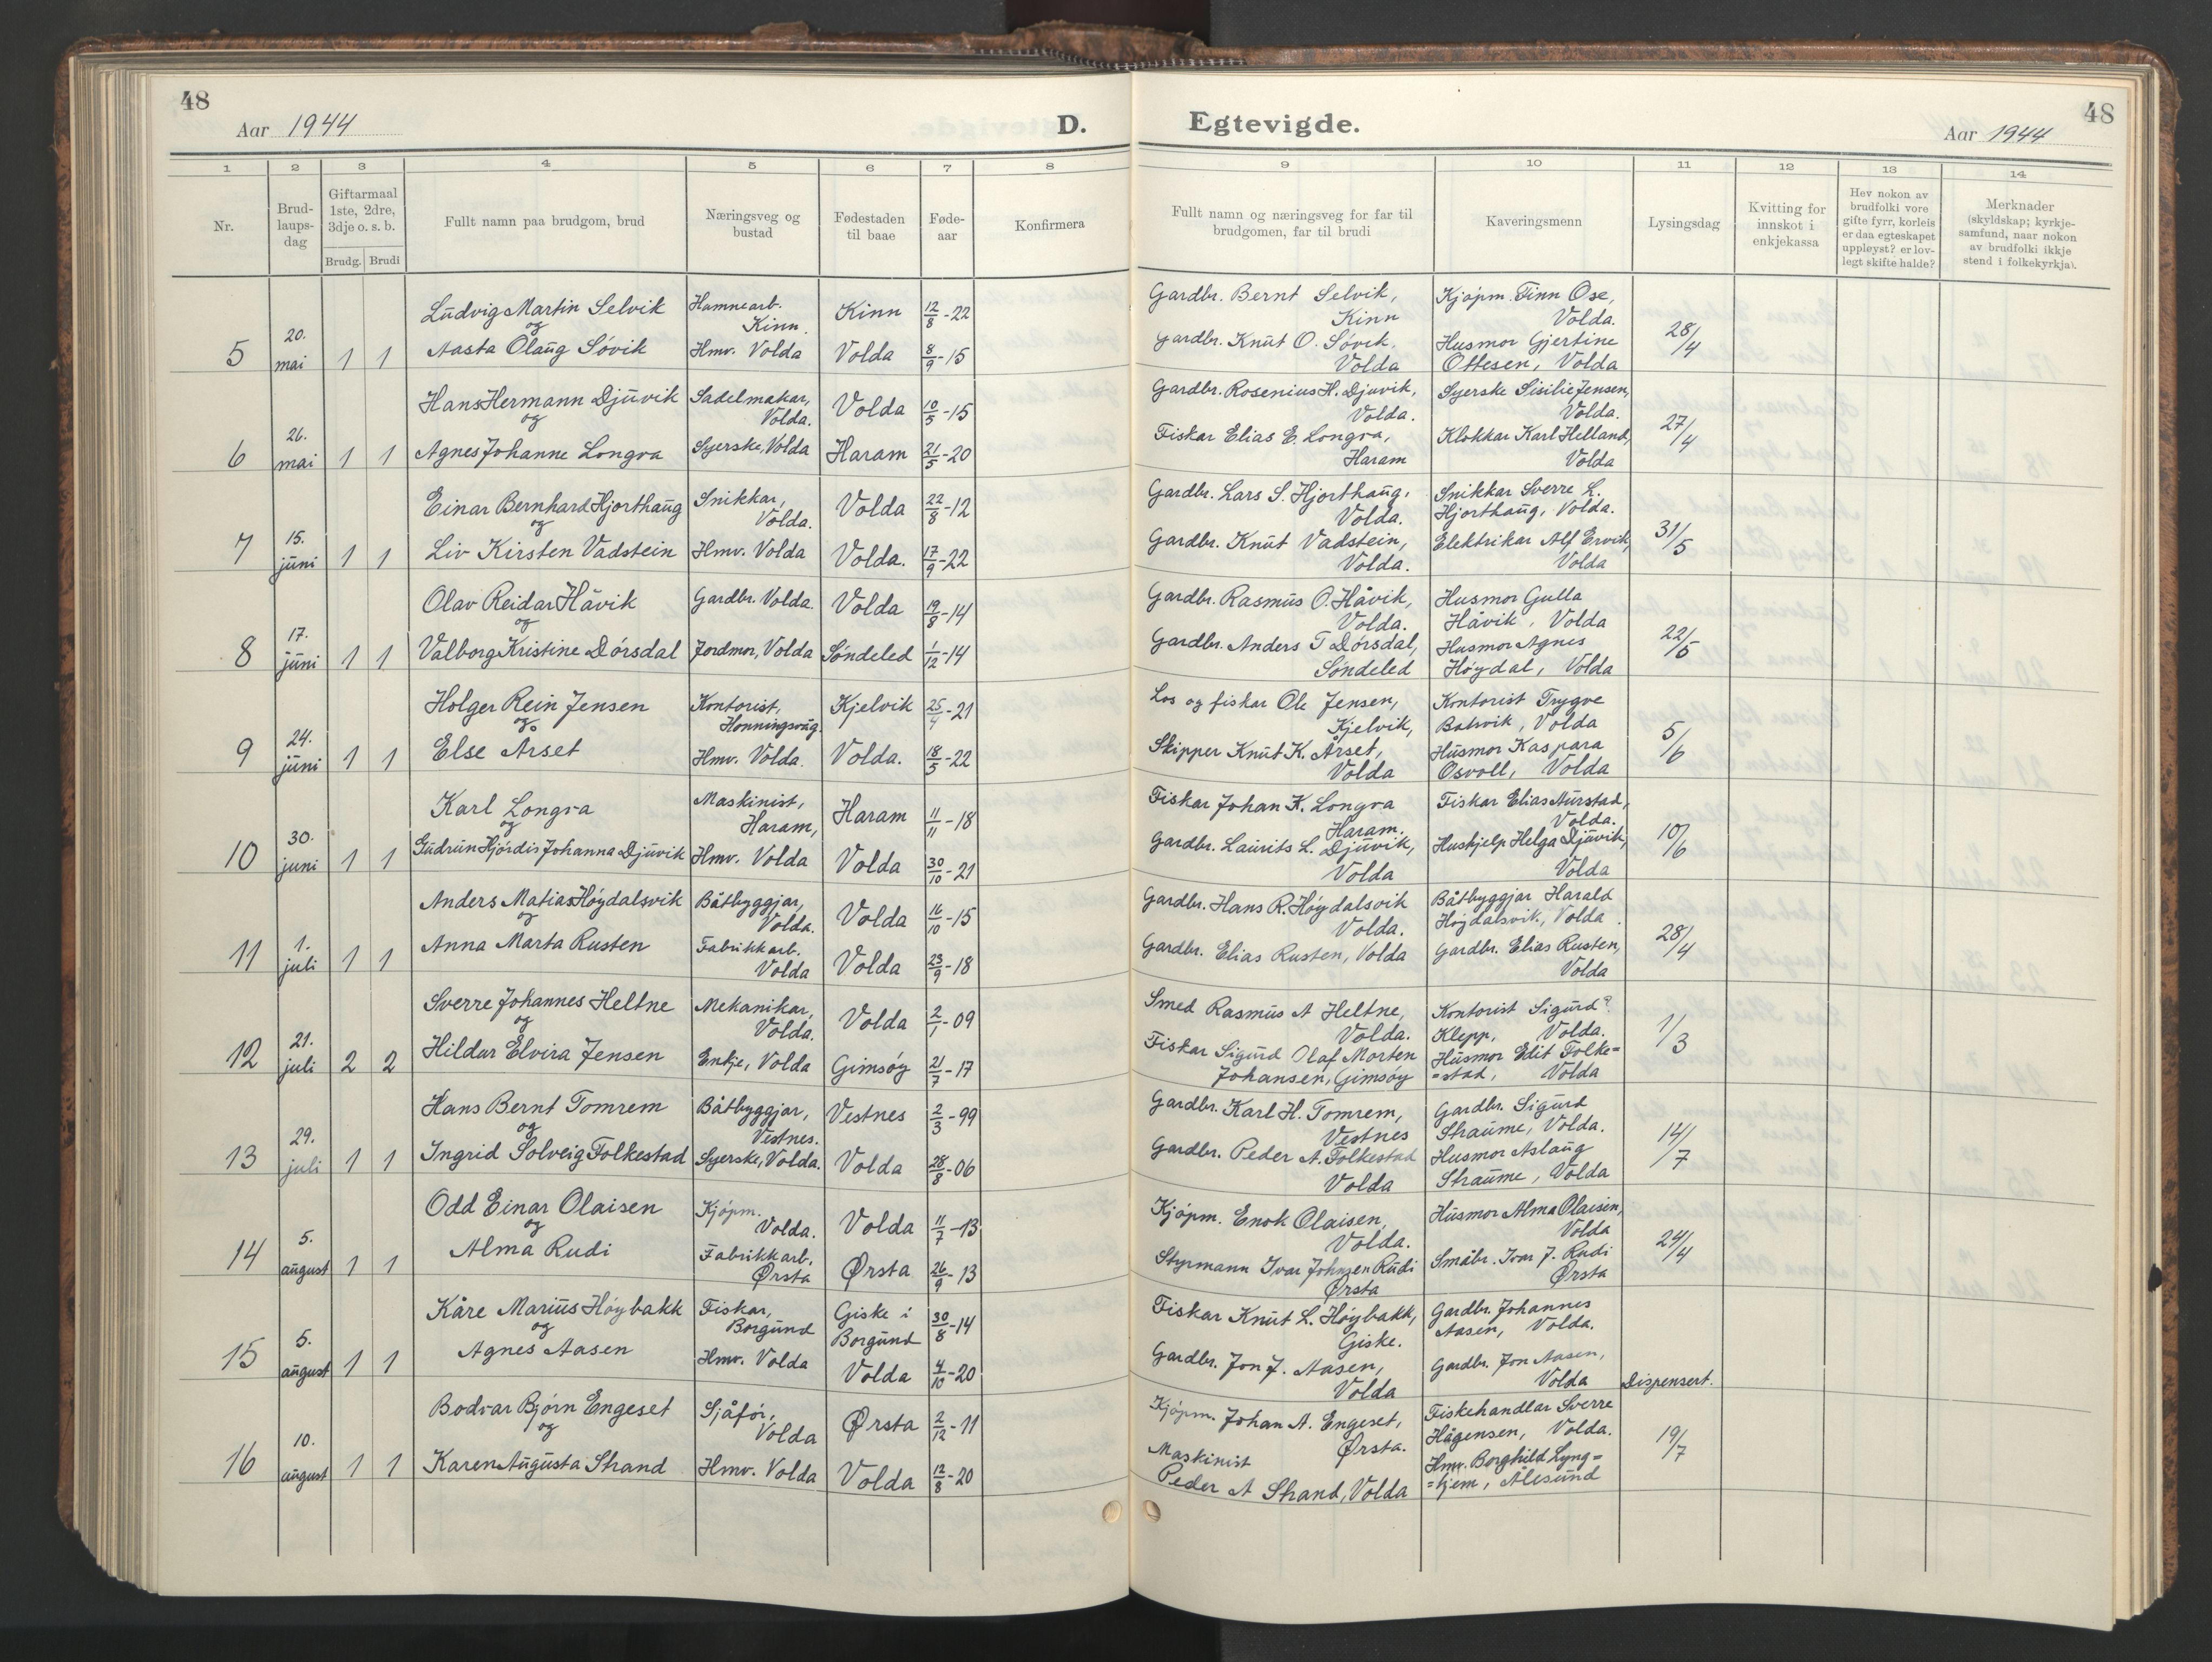 48
Aar 1944
D.
Egtevigde.
48
Aar 1944
1 2 3 4 5 6 7 8 9 10 11 12 13 14
Nr.
Brud-
laups-
dag
Giftarmaal
1ste, 2dre,
3dje o. s. b.
Brudg. Brudi
Fullt namn paa brudgom, brud
Næringsveg og
bustad
Fødestaden
til baae
Føde-
aar
Konfirmera
Fullt namn og næringsveg for far til
brudgomen, far til brudi
Kaveringsmenn
Lysingsdag
Kvitting for
innskot i
enkjekassa
Hev nokon av
brudfolki vore
gifte fyrr, korleis
er daa egteskapet
uppløyst? er lov-
legt skifte halde?
Merknader
(skyldskap; kyrkje-
samfund, naar nokon
av brudfolki ikkje
stend i folkekyrkja).
Ludvig Martin Selvik Hamnearb. Kinn 12/8-22 Gardbr. Bernt Selvik, Kjøpm. Finn Ose,
og Kinn. Kinn Volda.
5 20. mai 1 1 Aasta Olaug Søvik Hmv. Volda Volda 8/9-15 Gardbr. Knut O. Søvik. Husmor Gjertine 28/4
Volda Ottesen, Volda
Hans Hermann Djuvik Sadelmakar, Volda 10/5-15 Gardbr. Rosenius H. Djuvik, Syerske Sisilie Jensen,
og Volda. Volda. Volda.
6 26. mai 1 1 Agnes Johanne Longva Syerske, Volda Haram 21/5-20 Fiskar Elias E. Longva, Klokkar Karl Helland, 27/4
Haram Volda
Einar Bernhard Hjorthaug Snikkar, Volda 22/8-12 Gardbr. Lars S. Hjorthaug, Snikkar Sverre L.
og Volda. Volda. Hjorthaug, Volda.
7 15. juni 1 1 Liv Kirsten Vadstein Hmv. Volda Volda. 17/9-22 Gardbr. Knut Vadstein, Elektrikar Alf Ervik, 31/5
Volda. Volda
Olav Reidar Håvik Gardbr. Volda. Volda 19/8-14 Gardbr. Rasmus O. Håvik, Husmor Gulla
og Volda. Håvik, Volda
8 17. juni 1 1 Valborg Kristine Dørsdal Jordmor, Volda Søndeled 1/12-14 Gardbr. Anders T Dørsdal, Husmor Agnes 22/5
Søndeled Høydal, Volda
Holger Rein Jensen Kontorist, Kjelvik 25/4-21 Los og fiskar Ole Jensen, Kontorist Trygve
og Honningsvåg. Kjelvik, Volda
9 24. juni 1 1 Else Årset Hmv. Volda. Volda. 18/5-22 Skipper Knut K. Årset, Husmor Kaspara 5/6
Volda Osvoll, Volda
Karl Longva Maskinist, Haram 11/11-18 Fiskar Johan K. Longva Fiskar Elias Aurstad,
og Haram, Haram. Volda.
10 30. juni 1 1 Gudrun Hjørdis Johanna Djuvik Hmv. Volda Volda 30/10-21 Gardbr. Laurits L. Djuvik, Hushjelp Helga Djuvik, 10/6
Volda Volda
Anders Matias Høydalsvik Båtbyggjar, Volda 16/10-15 Gardbr. Hans R. Høydalsvik Båtbyggjar Harald
og Volda. Volda. Høydalsvik, Volda.
11 1. juli 1 1 Anna Marta Rusten Fabrikkarb. Volda 23/9-18 Gardbr. Elias Rusten, Volda Gardbr. Elias Rusten, 28/4
Volda Volda
Sverre Johannes Heltne Mekanikar, Volda 2/1-09 Smed Rasmus A Heltne, Kontorist Sigurd?
og Volda. Volda. Klepp, Volda.
12 21. juli 2 2 Hildur Elvira Jensen Enkje, Volda Gimsøy 21/7-17 Fiskar Sigurd Olaf Morten Husmor Edit Folke= 1/3
Johansen, Gimsøy =stad, Volda
Hans Bernt Tomrem Båtbyggjar, Vestnes 2/3-99 Gardbr. Karl H. Tomrem, Gardbr. Sigurd
og Vestnes. Vestnes Straume, Volda.
13 29. juli 1 1 Ingrid Solveig Folkestad Syerske, Volda. Volda 28/8-06 Gardbr. Peder A. Folkestad Husmor Aslaug 14/7
Volda Straume, Volda
Odd Einar Olaisen Kjøpm. Volda 11/7-13 Kjøpm. Enok Olaisen, Husmor Alma Olaisen,
og Volda. Volda. Volda
14 5. august 1 1 Alma Rudi Fabrikkarb. Ørsta 26/9-13 Styrmann Ivar Johnsen Rudi Småbr. Ivar J. Rudi 24/4
Ørsta Ørsta Ørsta
Kåre Marius Høybakk Fiskar, Giske i 30/8-14 Fiskar Knut L. Høybakk, Gardbr. Johannes
og Borgund Borgund Giske. Aasen, Volda.
15 5. august 1 1 Agnes Aasen Hmv. Volda Volda 4/10-20 Gardbr. Jon J. Aasen, Gardbr. Jon Aasen,
Volda Volda Dispensert.
Bodvar Bjørn Engeset Sjåfør, Ørsta 2/12-11 Kjøpm. Johan A. Engeset, Fiskehandlar Sverre
og Volda Ørsta. Hågensen, Volda.
16 10. august 1 1 Karen Augusta Strand Hmv. Volda Volda 12/8-20 Maskinist Hmv. Borghild Lyng= 19/7
Peder A Strand, Volda =hjem, Ålesund